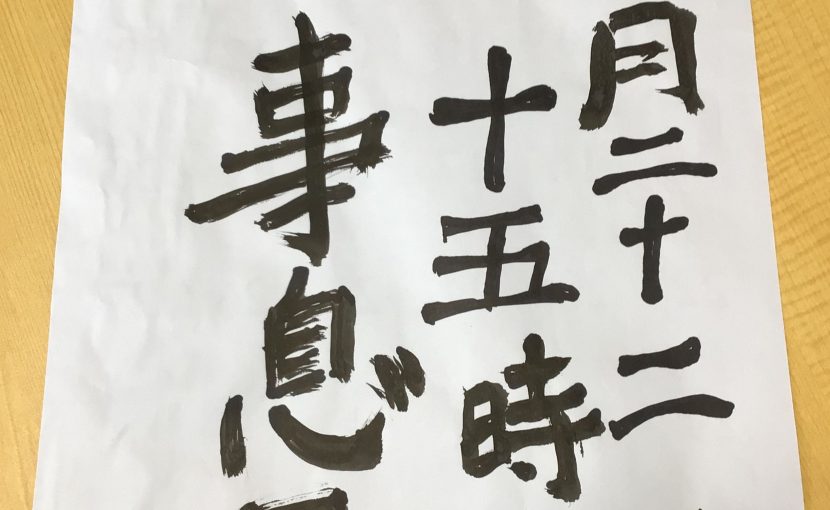 月二十二
十五時
事息